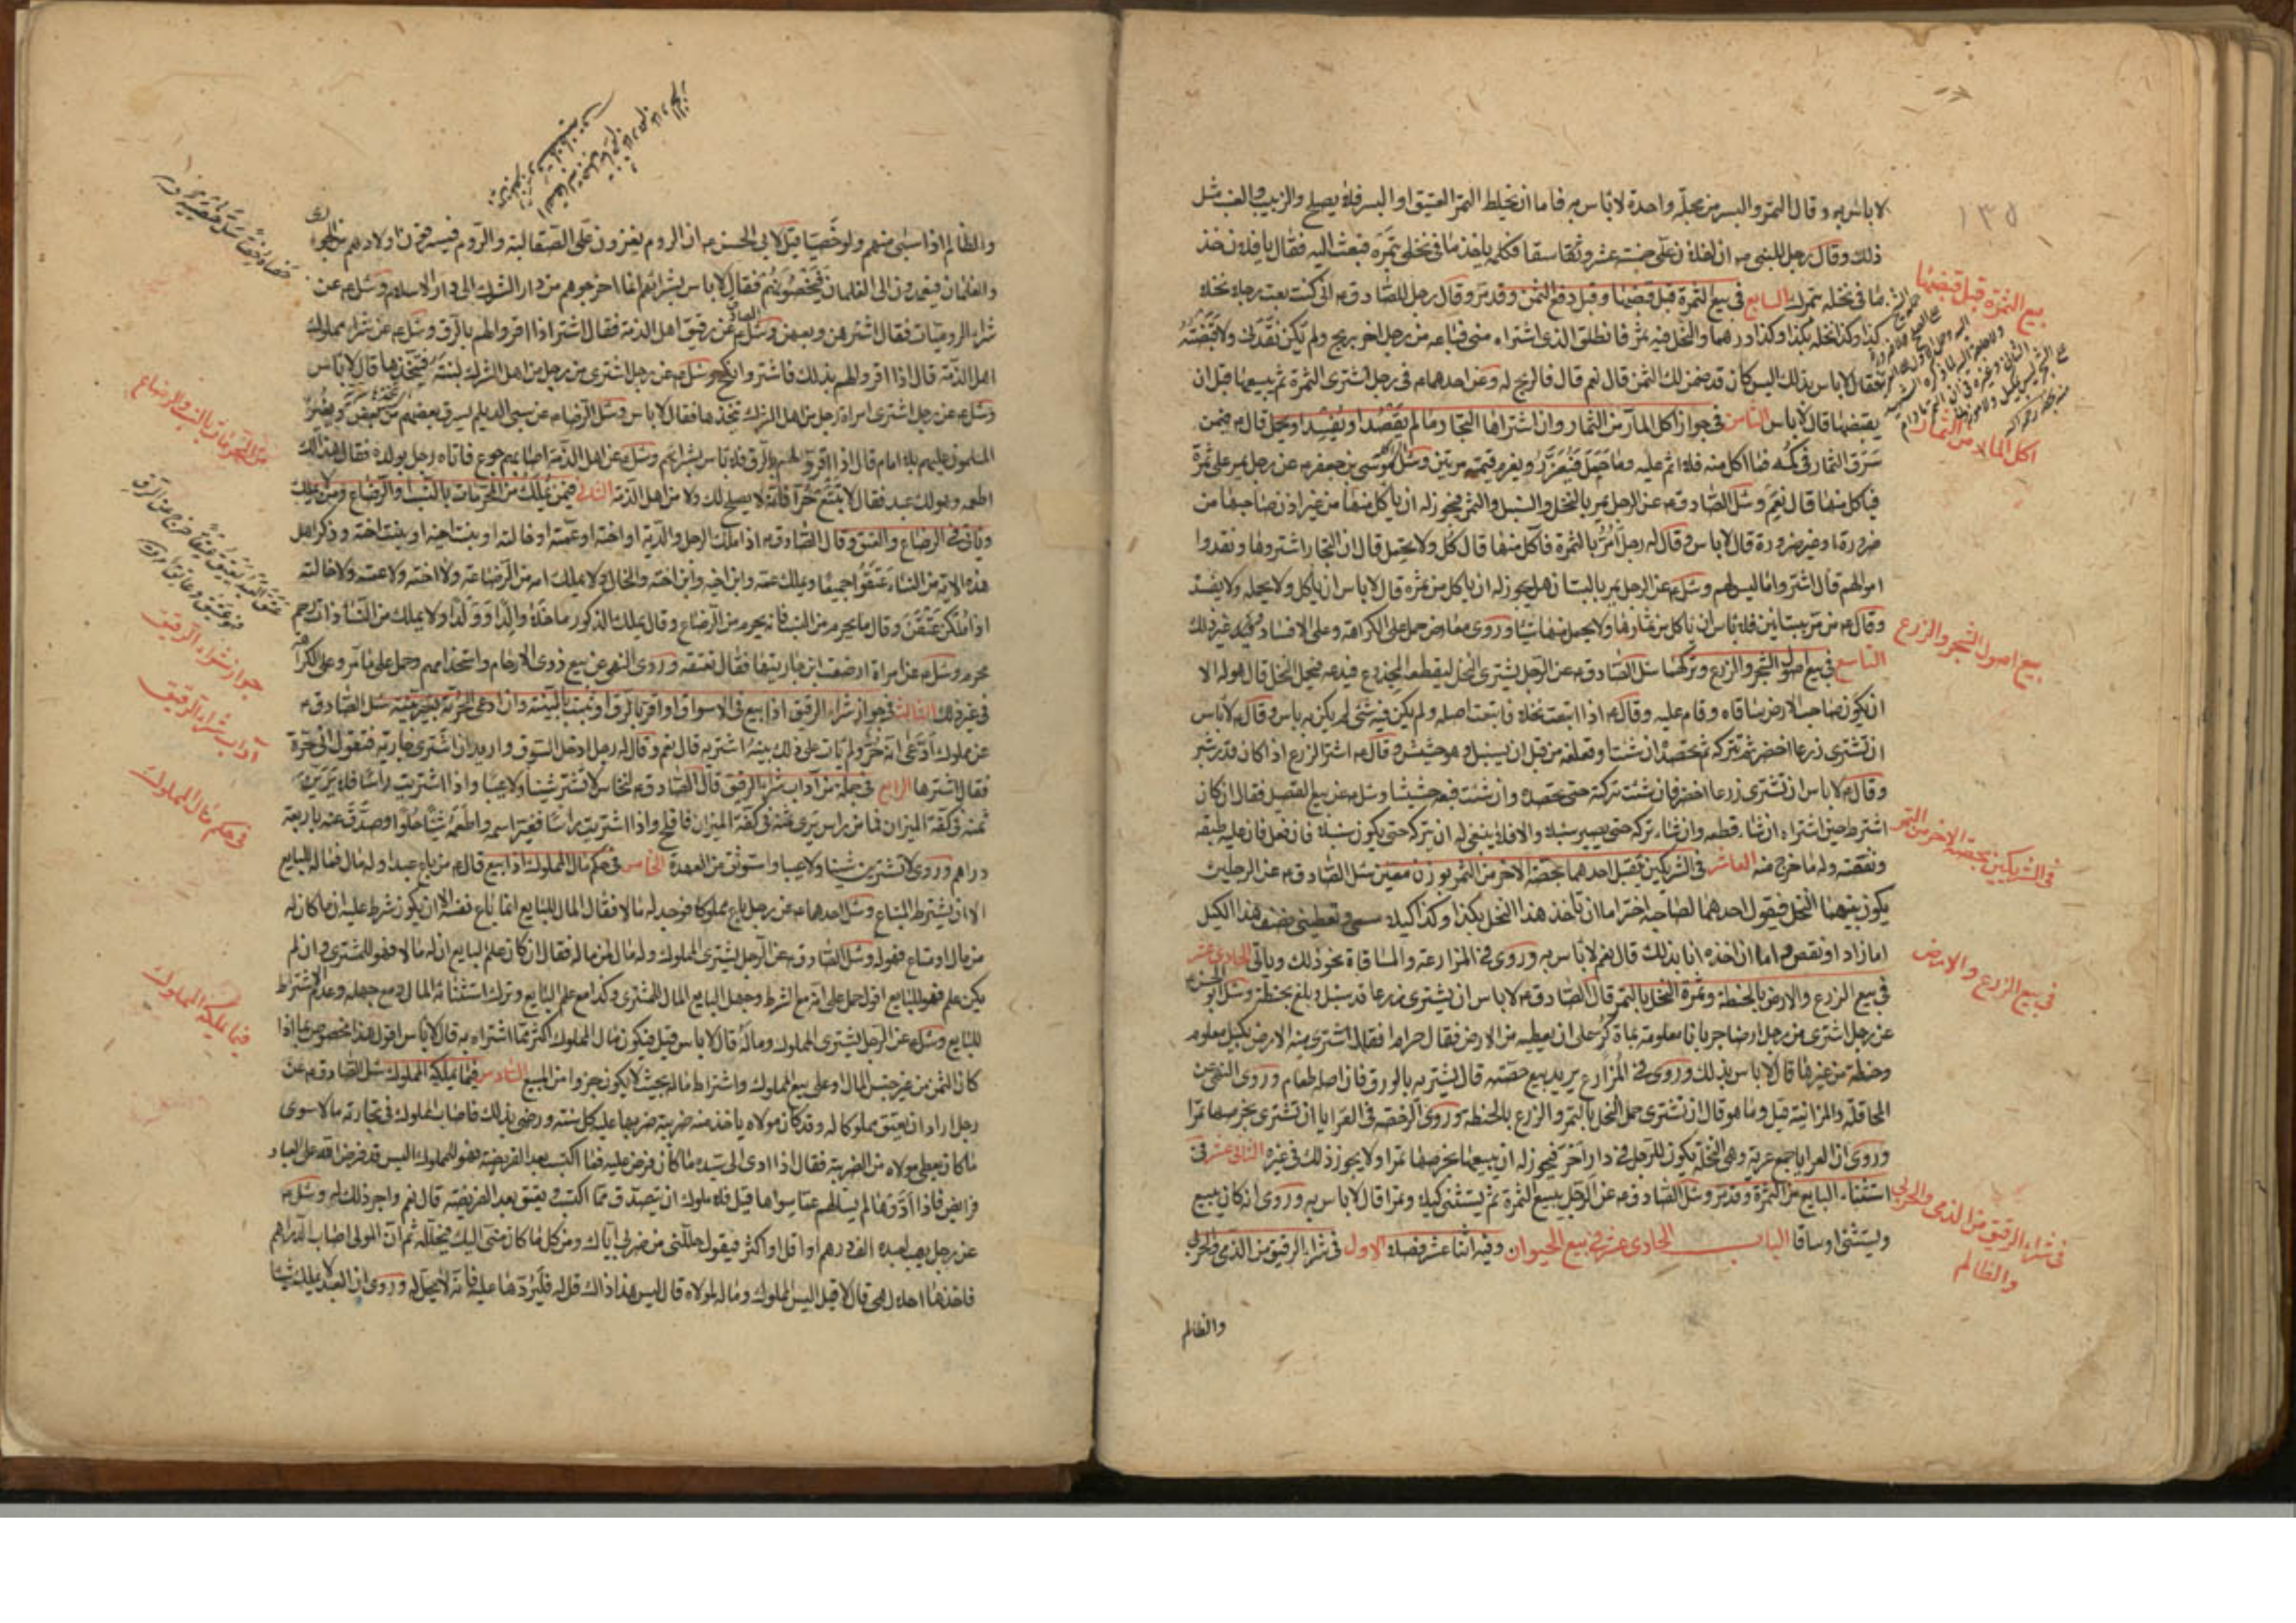 ١٣٥
لا باس به وقال التمر والبسر من نخلة واحدة لا باس به فاما ان يخلط التمر العتيق او البسر فلا يصلح والزبيب والعنب مثل
ذلك وقال رجل للنبي ص ان لفلان على خمسة عشر وسقا فكلمه ياخذ ما في نخلي بتمره فبعث اليه فقال يا فلان خذ
ما في نخله بتمرك السابع في بيع الثمرة قبل قبضها وقبل دفع الثمن وقد مر وقال رجل للصادق ع اني كنت بعت رجلا نخلا
كذا وكذا نخلة بكذا وكذا درهما والنخل فيه ثمر فانطلق الذي اشتراه مني فباعه من رجل اخر بربح ولم يكن نقدني ولا قبضته
فقال لا باس بذلك اليس كان قد ضمن لك الثمن قال نعم قال فالربح له وعن احدهما ع في رجل اشترى الثمرة ثم يبيعها قبل ان
يقبضها قال لا باس الثامن في جواز اكل المار من الثمار وان اشتراها التجار ما لم يقصد او يفسد او يحمل قال ع فيمن
سرق الثمار في كمه فما اكل منه فلا اثم عليه وما حمل فيعزر ويغرم قيمته مرتين وسئل موسى بن جعفر ع عن رجل يمر على ثمرة
فياكل منها قال نعم وسئل الصادق ع عن الرجل يمر بالنخل والسنبل والثمر فيجوز له ان ياكل منها من غير اذن صاحبها من
ضرورة او غير ضرورة قال لا باس وقال له رجل امر بالثمرة فآكل منها قال كل ولا تحمل قال ان التجار اشتروها ونقدوا
اموالهم قال اشتروا ما ليس لهم وسئل ع عن الرجل يمر بالبستان هل يجوز له ان ياكل من ثمره قال لا باس ان ياكل ولا يحمله ولا يفسد
وقال ع من مر ببساتين فلا باس ان ياكل من ثمارها ولا يحمل منها شيئا وروي معارض حمل على الكراهة وعلى الافساد وغير ذلك
التاسع في بيع اصول الشجر والزرع وتركها سئل الصادق ع عن الرجل يشتري النخل ليقطعه للجذوع فيدعه فيحمل النخل قال هو له الا
ان يكون صاحب الارض سقاه وقام عليه وقال ع اذا ابتعت نخلا فابتعت اصله ولم يكن فيه شيء لم يكن به باس وقال ع لا باس
ان تشتري زرعا اخضر ثم تتركه حتى تحصده ان شئت او تعلفه من قبل ان يسنبل وهو حشيش وقال ع اشتر الزرع اذا كان قدر شبر
وقال ع لا باس ان تشتري زرعا اخضر فان شئت تركته حتى تحصده وان شئت فبعه حشيشا وسئل ع عن بيع القصيل فقال ان كان
اشترط حين اشتراه ان شاء قطعه وان شاء تركه حتى يصير سنبلا والا فلا ينبغي له ان يتركه حتى يكون سنبلا فان فعل فان عليه طسقه
ونفقته وله ما خرج منه العاشر في الشريكين يتقبل احدهما بحصة الاخر من الثمر بوزن معين سئل الصادق ع عن الرجلين
يكون بينهما النخل فيقول احدهما لصاحبه اختر اما ان تاخذ هذا النخل بكذا وكذا كيلا مسمى وتعطيني نصف هذا الكيل
اما زاد او نقص واما ان اخذه انا بذلك قال نعم لا باس به وروي في المزارعة والمساقاة نحو ذلك وياتي الحادي عشر
في بيع الزرع والارض بالحنطة وثمرة النخل بالتمر قال الصادق ع لا باس ان يشتري زرعا قد سنبل وبلغ بحنطة وسئل ابو الحسن ع
عن رجل اشترى من رجل ارضا جربانا معلومة بمائة كر على ان يعطيه من الارض فقال حرام فقال اشتري منه الارض بكيل معلوم
وحنطة من غيرها قال لا باس بذلك وروي في المزارع يريد بيع حصته قال يشتريه بالورق فان اصله طعام وروي النهي عن
المحاقلة والمزابنة قيل وما هو قال ان تشتري حمل النخل بالتمر والزرع بالحنطة وروي الرخصة في العرايا ان تشترى بخرصها تمرا
وروي ان العرايا جمع عرية وهي النخلة تكون للرجل في دار آخر فيجوز له ان يبيعها بخرصها تمرا ولا يجوز ذلك في غيره الثاني عشر في
استثناء البايع من الثمرة وقد مر وسئل الصادق ع عن الرجل يبيع الثمرة ثم يستثني كيلا وتمرا قال لا باس به وروي انه كان يبيع
ويستثني اوساقا الباب الحادي عشر في بيع الحيوان وفيه اثنا عشر فصلا الاول في شراء الرقيق من الذمي والحربي
والظالم
بيع الثمرة قبل قبضها
اكل المار من الثمار
بيع اصول الشجر والزرع
في الشريكين بحصة الاخر من الثمر
في بيع الزرع والارض
في شراء الرقيق من الذمي والحربي
والظالم
والظالم اذا سبي منهم ولو خصيا قيل لابي الحسن ع ان الروم يغزون على الصقالبة والروم فيسرقون اولادهم من الجواري
والغلمان فيعمدون الى الغلمان فيخصونهم فقال لا باس بشرائهم انما اخرجوهم من دار الشرك الى دار الاسلام وسئل ع عن
شراء الروميات فقال اشترهن وبعهن وسئل ع عن رقيق اهل الذمة فقال اشتر اذا اقروا لهم بالرق وسئل ع عن شراء مملوك
اهل الذمة قال اذا اقروا لهم بذلك فاشتر وانكح وسئل ع عن رجل اشترى من رجل من اهل الشرك ابنته فيتخذها قال لا باس
وسئل ع عن رجل اشترى امراة رجل من اهل الشرك يتخذها فقال لا باس وسئل الرضا ع عن سبي الديلم يسرق بعضهم من بعض ويغير
المسلمون عليهم بلا امام قال اذا اقروا لهم بالرق فلا باس بشرائهم وسئل ع عن اهل الذمة اصابهم جوع فاتاه رجل بولده فقال هذا لك
اطعمه وهو لك عبد فقال لا تبتع حرا فانه لا يصلح لك ولا من اهل الذمة الثاني فيمن يملك من المحرمات بالنسب والرضاع ومن لا يملك
وياتي في الرضاع والعتق وقال الصادق ع اذا ملك الرجل والديه او اخته او عمته او خالته او بنت اخيه او بنت اخته وذكر اهل
هذه الاية من النساء عتقوا جميعا ويملك عمه وابن اخيه وابن اخته والخال ولا يملك امه من الرضاعة ولا اخته ولا عمته ولا خالته
اذا ملكن عتقن وقال ما يحرم من النسب فانه يحرم من الرضاع وقال يملك الذكور ما خلا والدا وولدا ولا يملك من النساء ذات رحم
محرم وسئل ع عن امراة ارضعت ابن جاريتها فقال تعتقه وروي النهي عن بيع ذوي الارحام واستخدامهم وحمل على ما مر وعلى الكراهة
في غير ذلك الثالث في جواز شراء الرقيق اذا بيع في الاسواق او اقر بالرق او ثبت بالبينة وان ادعى الحرية بغير بينة سئل الصادق ع
عن مملوك ادعى انه حر ولم يات على ذلك بينة اشتريه قال نعم وقال له رجل ادخل السوق واريد ان اشتري جارية فتقول اني حرة
فقال اشترها الرابع في جملة من آداب شراء الرقيق قال الصادق ع لنخاس لا تشتر شينا ولا عيبا واذا اشتريت راسا فلا ترين
ثمنه في كفة الميزان فما من راس يرى ثمنه في كفة الميزان فافلح واذا اشتريت راسا فغير اسمه واطعمه شيئا حلوا وصدق عنه باربعة
دراهم وروي لا تشترين شينا ولا عيبا واستوثق من العهدة الخامس في حكم مال المملوك اذا بيع قال ع من باع عبدا وله مال فماله للبايع
الا ان يشترط المبتاع وسئل احدهما ع عن رجل باع مملوكا فوجد له مالا فقال المال للبايع انما باع نفسه الا ان يكون شرط عليه ان ما كان له
من مال او متاع فهو له وسئل الصادق ع عن الرجل يشتري المملوك وله مال لمن ماله فقال ان كان علم البايع ان له مالا فهو للمشتري وان لم
يكن علم فهو للبايع اقول حمل على
للبايع وسئل ع عن الرجل يشتري المملوك وماله قال لا باس قيل فيكون مال المملوك اكثر مما اشتراه به قال لا باس اقول هذا مخصوص بما اذا
كان الثمن من غير جنس المال او على بيع المملوك واشتراط ماله بحيث لا يكون جزوا من المبيع السادس فيما يملكه المملوك سئل الصادق ع عن
رجل اراد ان يعتق مملوكا له وقد كان مولاه ياخذ منه ضريبة ضربها عليه كل سنة ورضي بذلك فاصاب المملوك في تجارته مالا سوى
ما كان يعطي مولاه من الضريبة فقال اذا ادى الى سيده ما كان فرض عليه فما اكتسب بعد الفريضة فهو للمملوك اليس قد فرض الله على العباد
فرايض فاذا ادوها لم يسالهم عما سواها قيل فللمملوك ان يتصدق مما اكتسب ويعتق بعد الفريضة قال نعم واجر ذلك له وسئل ع
عن رجل يهب لعبده الف درهم او اقل او اكثر فيقول حللني من ضربي اياك ومن كل ما كان مني اليك فيحلله ثم ان المولى اصاب الدراهم
فاخذها احلال هي قال لا قيل اليس المملوك وماله لمولاه قال ليس هذا ذاك قل له فليردها عليه فانه لا يحل له وروي ان العبد لا يملك شيئا
من المحرمات بالنسب والرضاع
جواز شراء الرقيق
آداب شراء الرقيق
في حكم مال المملوك
فيما يملكه المملوك